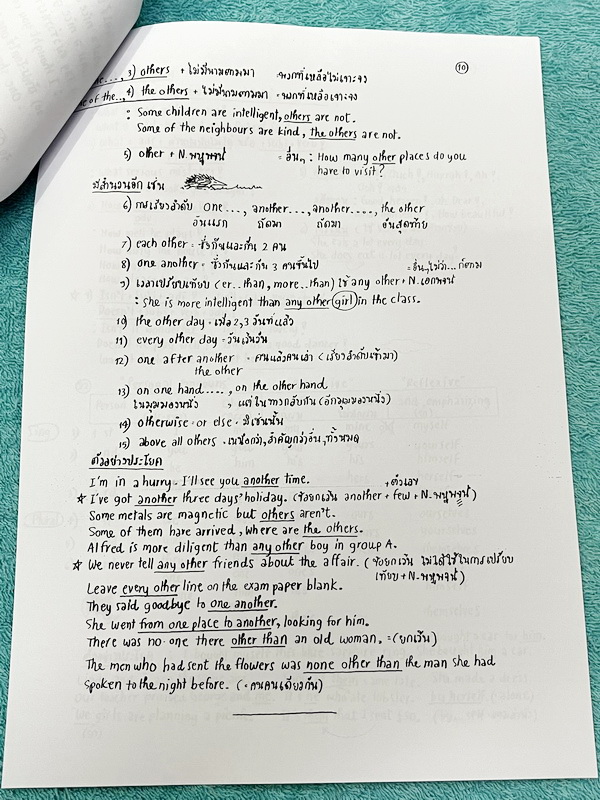 10
...., 3) others + ไม่มีนามตามมา = พวกที่เหลือไม่เจาะจง
e of the.., 4) the others + ไม่มีนามตามมา = พวกที่เหลือเจาะจง
: Some children are intelligent, others are not.
Some of the neighbours are kind, the others are not.
5) other + N. พหูพจน์ = อื่นๆ : How many other places do you
have to visit?
มีสำนวนอีก เช่น
6) การเรียงลำดับ one...., another...., another....., the other
อันแรก ถัดมา ถัดมา อันสุดท้าย
7) each other = ซึ่งกันและกัน 2 คน
8) one another = ซึ่งกันและกัน 3 คนขึ้นไป
9) เวลาเปรียบเทียบ (er..than, more..than) ใช้ any other + N.เอกพจน์ = อื่นๆ ไม่ว่า...ก็ตาม
: She is more intelligent than any other girl in the class.
10) the other day = เมื่อ 2,3 วันที่แล้ว
11) every other day = วันเว้นวัน
12) one after another = คนแล้วคนเล่า (เรียงลำดับเข้ามา)
the other
13) on one hand....., on the other hand
ในมุมมองหนึ่ง , แต่ในทางกลับกัน (อีกมุมมองหนึ่ง)
14) otherwise = or else = มิเช่นนั้น
15) above all others = เหนือกว่า, สำคัญกว่าอื่น, ทั้งหมด
ตัวอย่างประโยค
I'm in a hurry. I'll see you another time.
+ตัวเลข
☆ I've got another three days' holiday. (ข้อยกเว้น another + few + N. พหูพจน์)
Some metals are magnetic but others aren't.
Some of them have arrived, where are the others.
Alfred is more diligent than any other boy in group A.
☆ We never tell any other friends about the affair. (ข้อยกเว้น ไม่ได้ใช้ในการเปรียบ
เทียบ + N. พหูพจน์)
Leave every other line on the exam paper blank.
They said goodbye to one another.
She went from one place to another, looking for him.
There was no-one there other than an old woman. = (ยกเว้น)
The men who had sent the flowers was none other than the man she had
spoken to the night before. (= คนคนเดียวกัน)